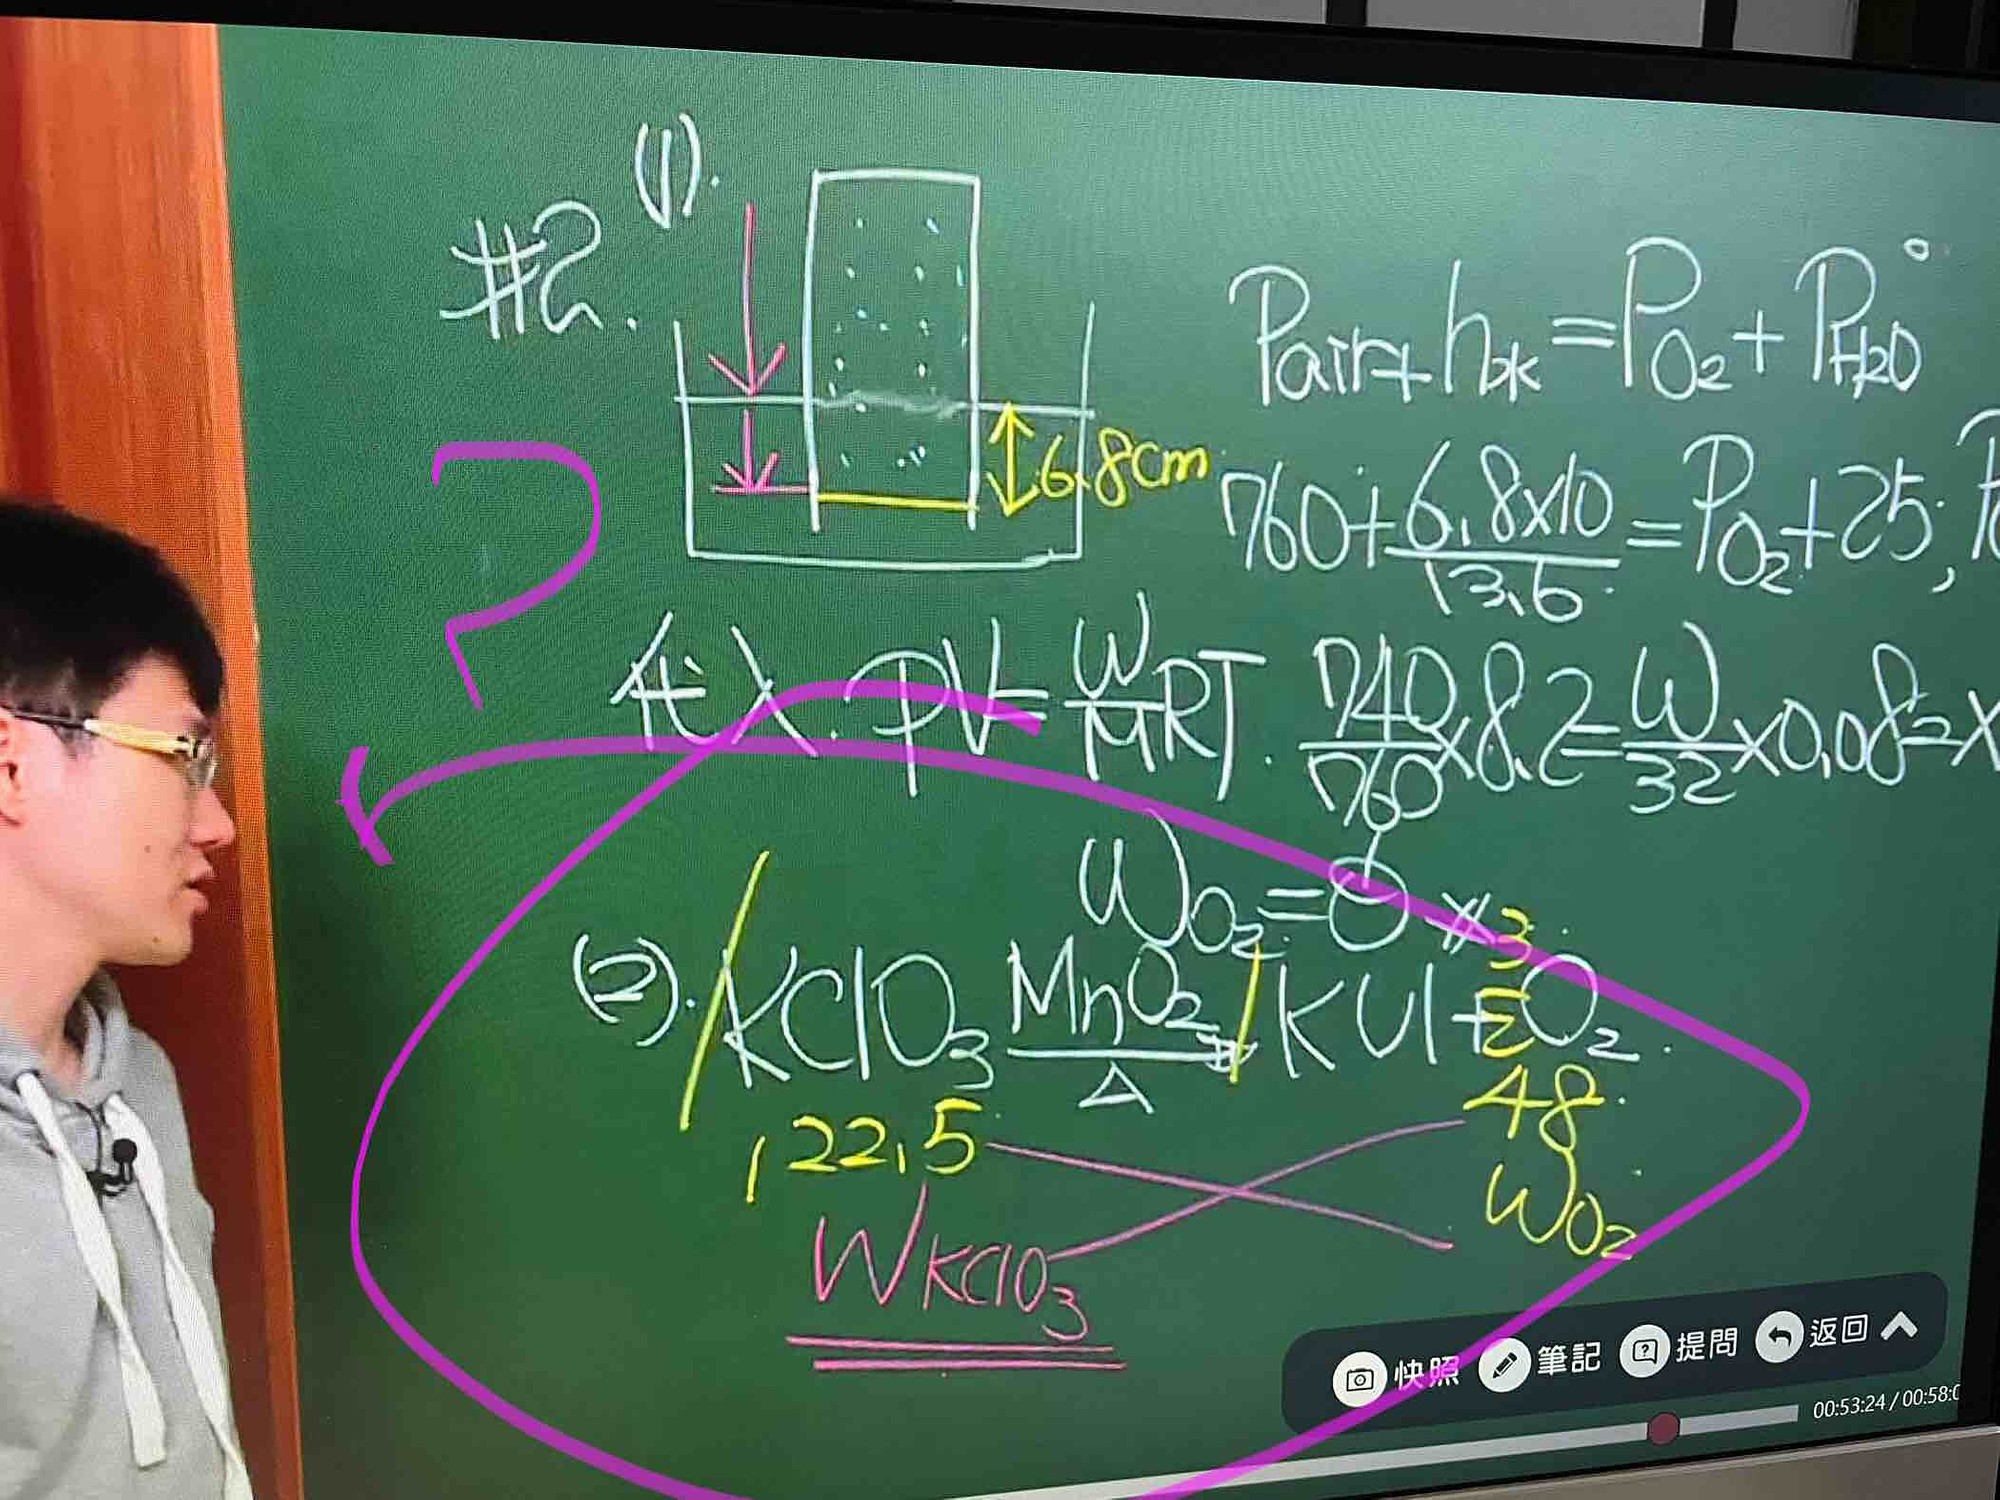 #2. (1).
6.8cm
Pair + h水 = PO₂ + PH₂O°
760 + 6.8x10/13.6 = PO₂ + 25,
代入. PV = W/M RT. 740/760 x 8.2 = W/32 x 0.082 x
WO₂ =
(2). 1 KClO₃ MnO₂ Δ → 1 KCl + 3/2 O₂
122.5 48
WKClO₃ WO₂
?
快照 筆記 提問 返回
00:53:24 / 00:58:0